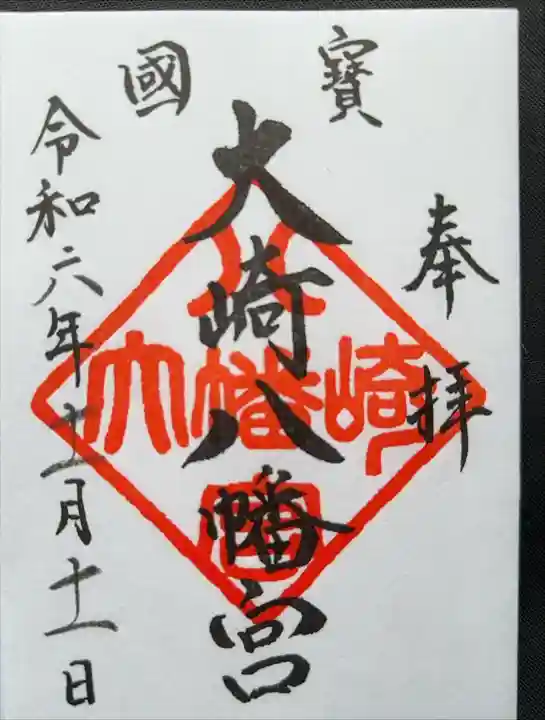 國寶
奉拝
大崎八幡宮
八
大幡崎
宮
令和六年十二月十一日